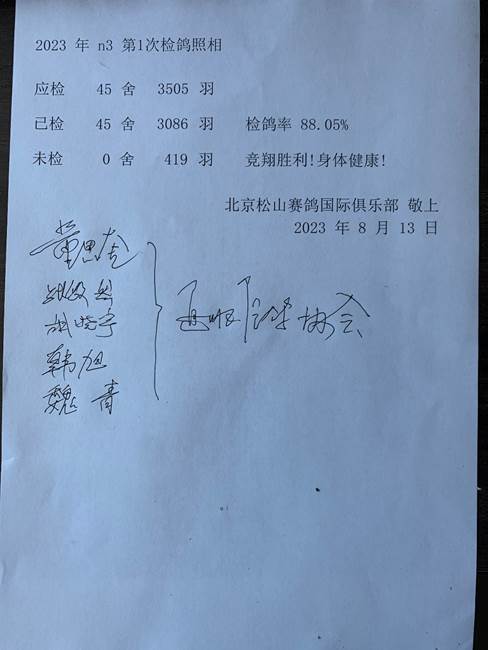 2023 年 n3 第1次检鸽照相
应检 45 舍 3505 羽
已检 45 舍 3086 羽 检鸽率 88.05%
未检 0 舍 419 羽 竞翔胜利!身体健康!
北京松山赛鸽国际俱乐部 敬上
2023 年 8 月 13 日
协会
韩旭
魏青